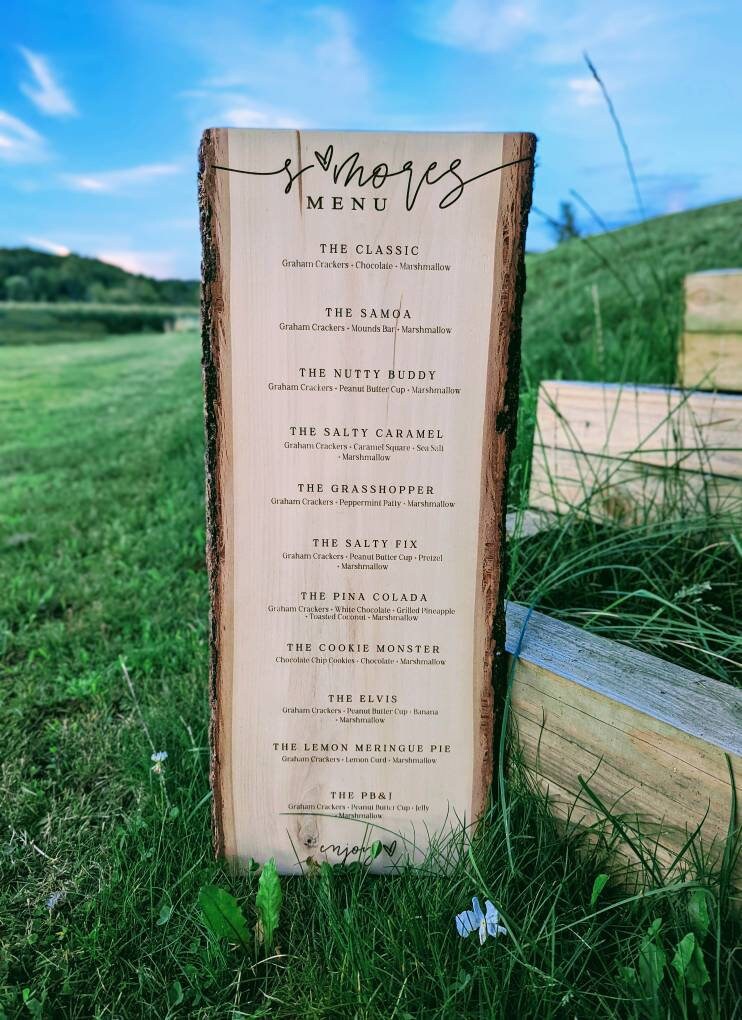 s'mores
MENU
THE CLASSIC
Graham Crackers • Chocolate • Marshmallow
THE SAMOA
Graham Crackers • Mounds Bar • Marshmallow
THE NUTTY BUDDY
Graham Crackers • Peanut Butter Cup • Marshmallow
THE SALTY CARAMEL
Graham Crackers • Caramel Square • Sea Salt
• Marshmallow
THE GRASSHOPPER
Graham Crackers • Peppermint Patty • Marshmallow
THE SALTY FIX
Graham Crackers • Peanut Butter Cup • Pretzel
• Marshmallow
THE PINA COLADA
Graham Crackers • White Chocolate • Grilled Pineapple
• Toasted Coconut • Marshmallow
THE COOKIE MONSTER
Chocolate Chip Cookies • Chocolate • Marshmallow
THE ELVIS
Graham Crackers • Peanut Butter Cup • Banana
• Marshmallow
THE LEMON MERINGUE PIE
Graham Crackers • Lemon Curd • Marshmallow
THE PB&J
Graham Crackers • Peanut Butter Cup • Jelly
• Marshmallow
enjoy